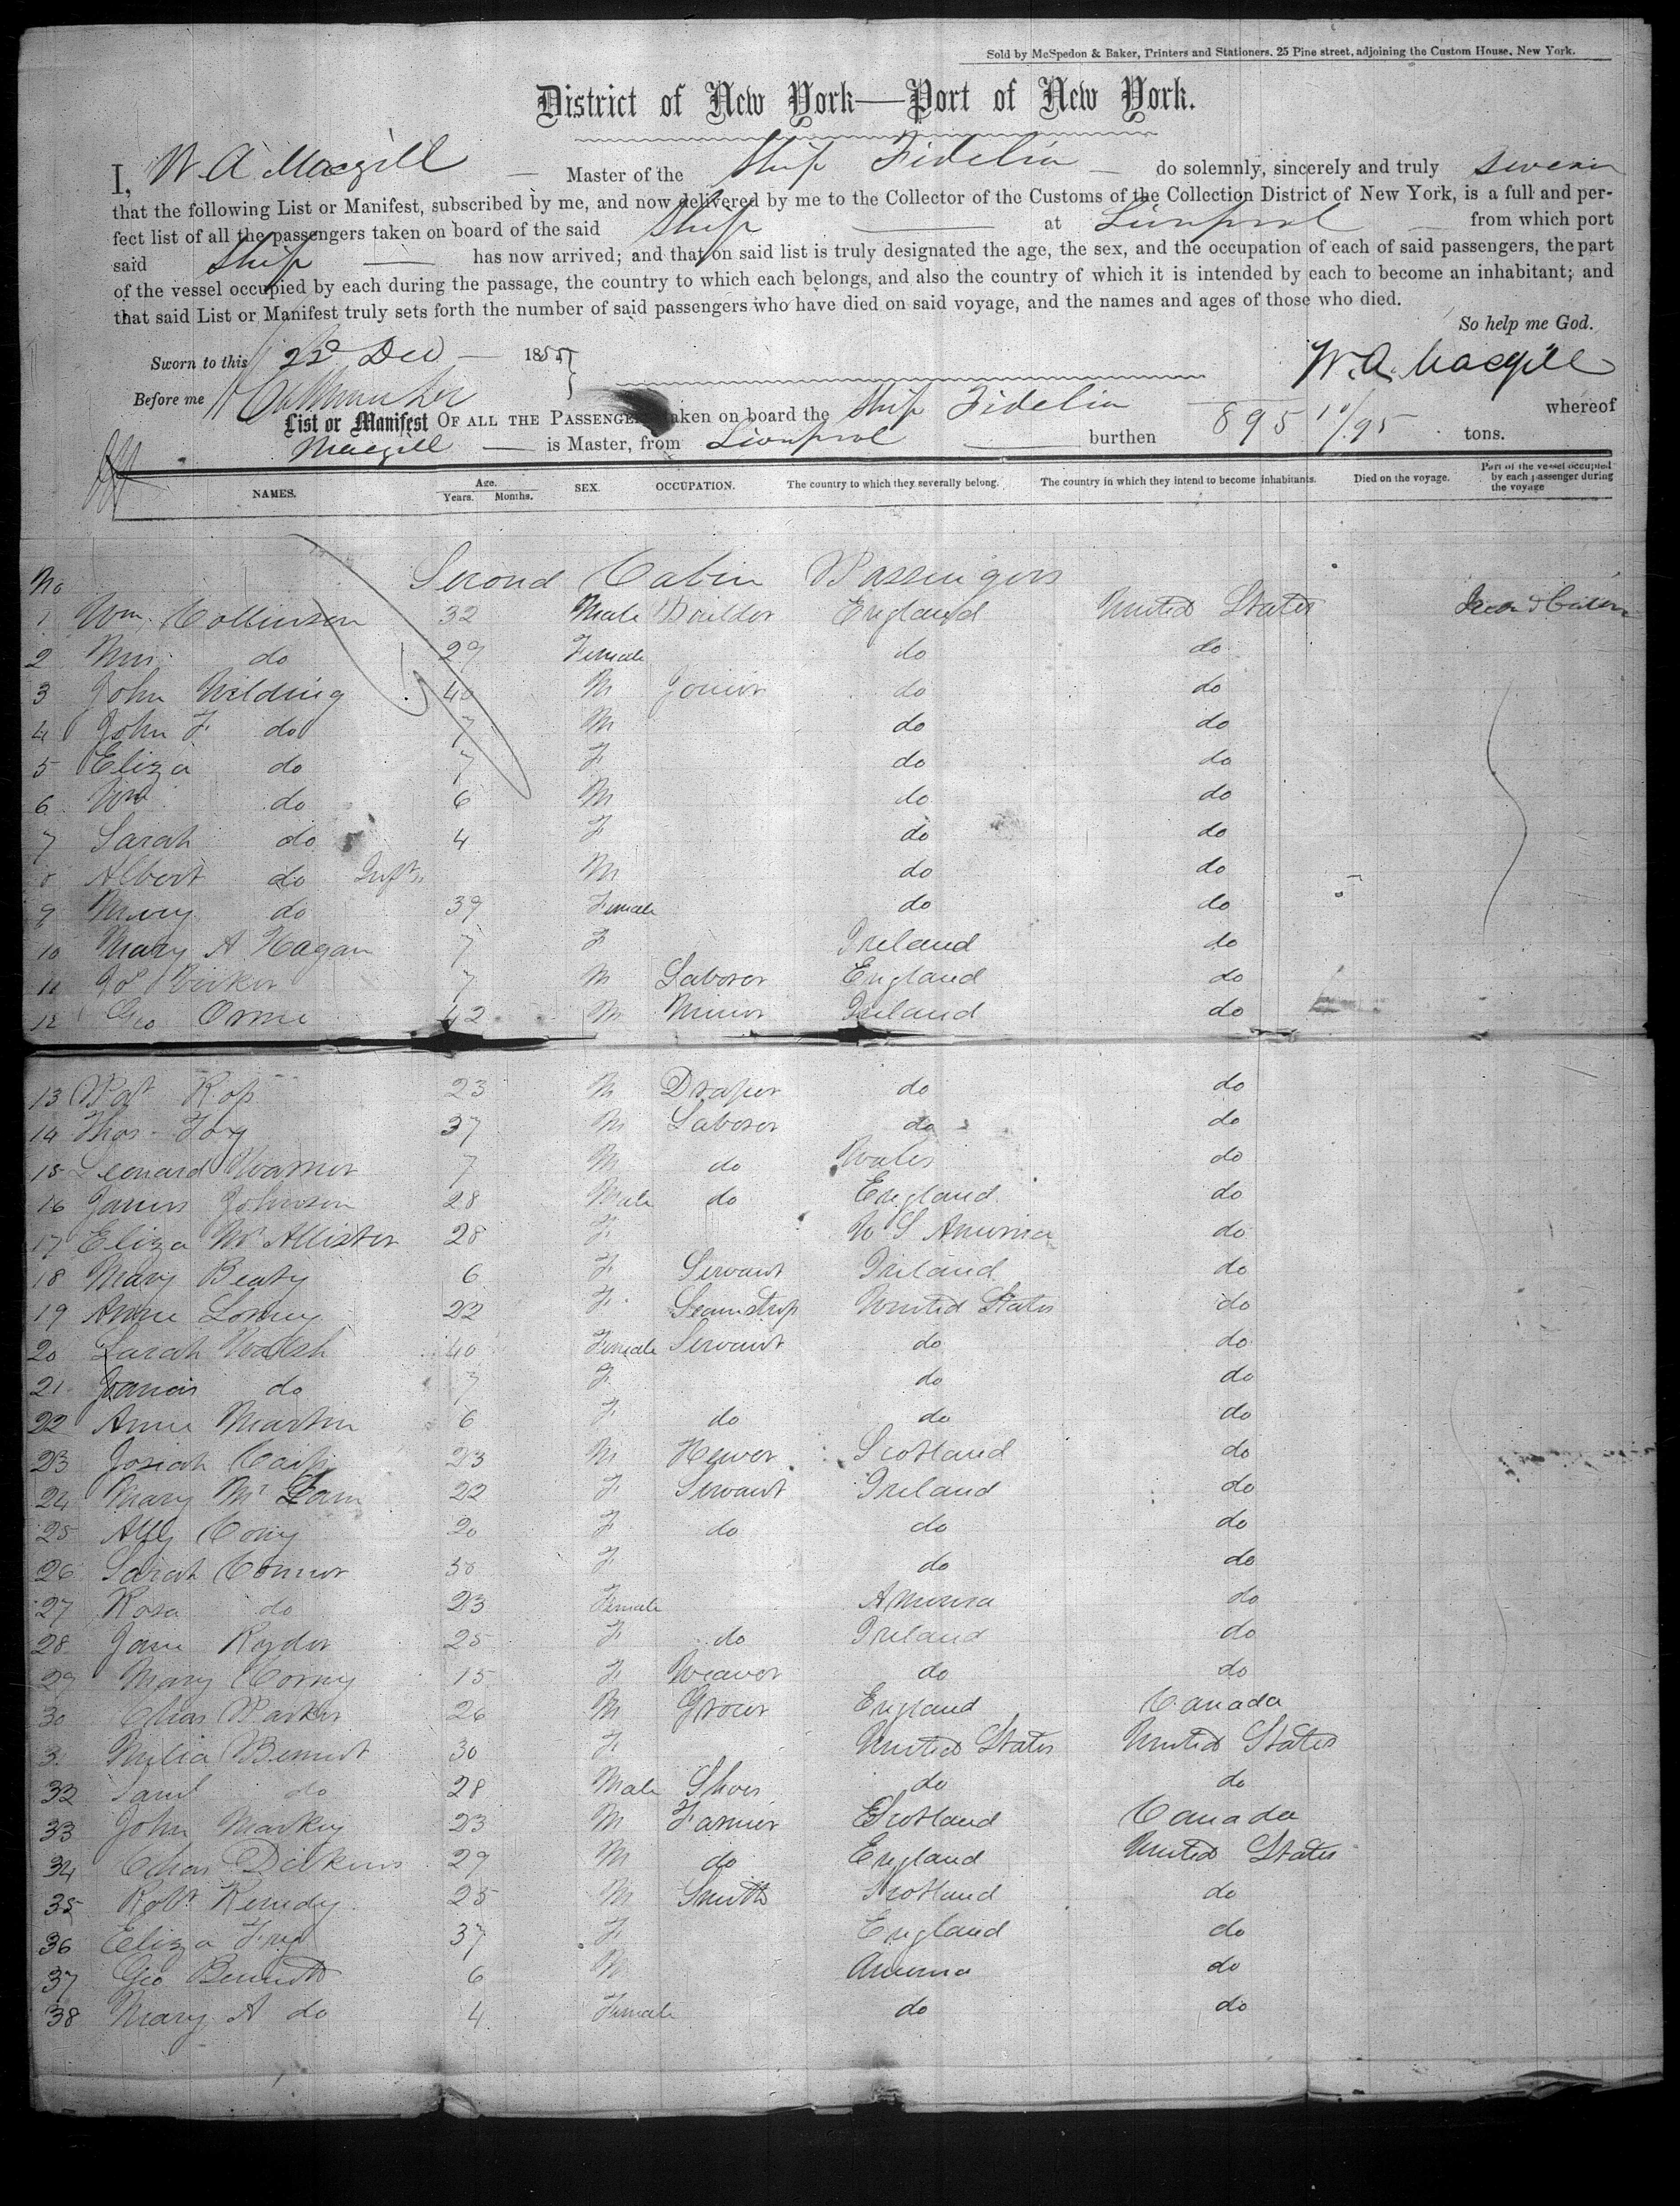 Sold by McSpedon & Baker, Printers and Stationers, 25 Pine street, adjoining the Custom House, New York.
District of New York—Port of New York.
I, W. A. Macgill — Master of the Ship Fidelia — do solemnly, sincerely and truly swear
that the following List or Manifest, subscribed by me, and now delivered by me to the Collector of the Customs of the Collection District of New York, is a full and per-
fect list of all the passengers taken on board of the said Ship — at Liverpool — from which port
said Ship — has now arrived; and that on said list is truly designated the age, the sex, and the occupation of each of said passengers, the part
of the vessel occupied by each during the passage, the country to which each belongs, and also the country of which it is intended by each to become an inhabitant; and
that said List or Manifest truly sets forth the number of said passengers who have died on said voyage, and the names and ages of those who died.
So help me God.
Sworn to this 22d Dec — 1855
W. A. Macgill
Before me
List or Manifest OF ALL THE PASSENGERS taken on board the Ship Fidelia — whereof
Macgill — is Master, from Liverpool — burthen 895 10/95 tons.
NAMES. Age. Years. Months. SEX. OCCUPATION. The country to which they severally belong. The country in which they intend to become inhabitants. Died on the voyage. Part of the vessel occupied by each passenger during the voyage
No Second Cabin Passengers
1 Wm. Collinson 32 Male Builder England United States
2 Mrs. do 29 Female do do
3 John Wilding 40 M Joiner do do
4 John F do 7 M do do
5 Eliza do 7 F do do
6 Wm do 6 M do do
7 Sarah do 4 F do do
8 Albert do Inft. M do do
9 Mary do 39 Female do do
10 Mary A Hagan 7 F Ireland do
11 7 M Laborer England do
12 Geo Orme 42 M Miner Ireland do
13 Pat 23 M Draper do do
14 Thos Foy 37 M Laborer do do
15 Leonard Warner 7 M do Wales do
16 James Johnson 28 Male do England do
17 Eliza McAllister 28 F U S America do
18 Mary Beaty 6 F Servant Ireland do
19 Anne 22 F Seamstress United States do
20 Sarah Walsh 40 Female Servant do do
21 Francis do 7 F do do
22 Anne Martin 6 F do do do
23 Josiah 23 M Hewer Scotland do
24 Mary Mc 22 F Servant Ireland do
25 Ally 20 F do do do
26 Sarah Connor 50 F do do
27 Rosa do 23 Female America do
28 Jane Ryder 25 F do Ireland do
29 Mary 15 F Weaver do do
30 Chas Parker 26 M Grocer England Canada
31 Bennett 30 F United States United States
32 Saml do 28 Male Shoes do do
33 John Markey 23 M Farmer Scotland Canada
34 Chas Dickens 29 M do England United States
35 Robt Kennedy 25 M Smith Scotland do
36 Eliza Frey 37 F England do
37 Geo Bennett 6 M America do
38 Mary A do 4 Female do do